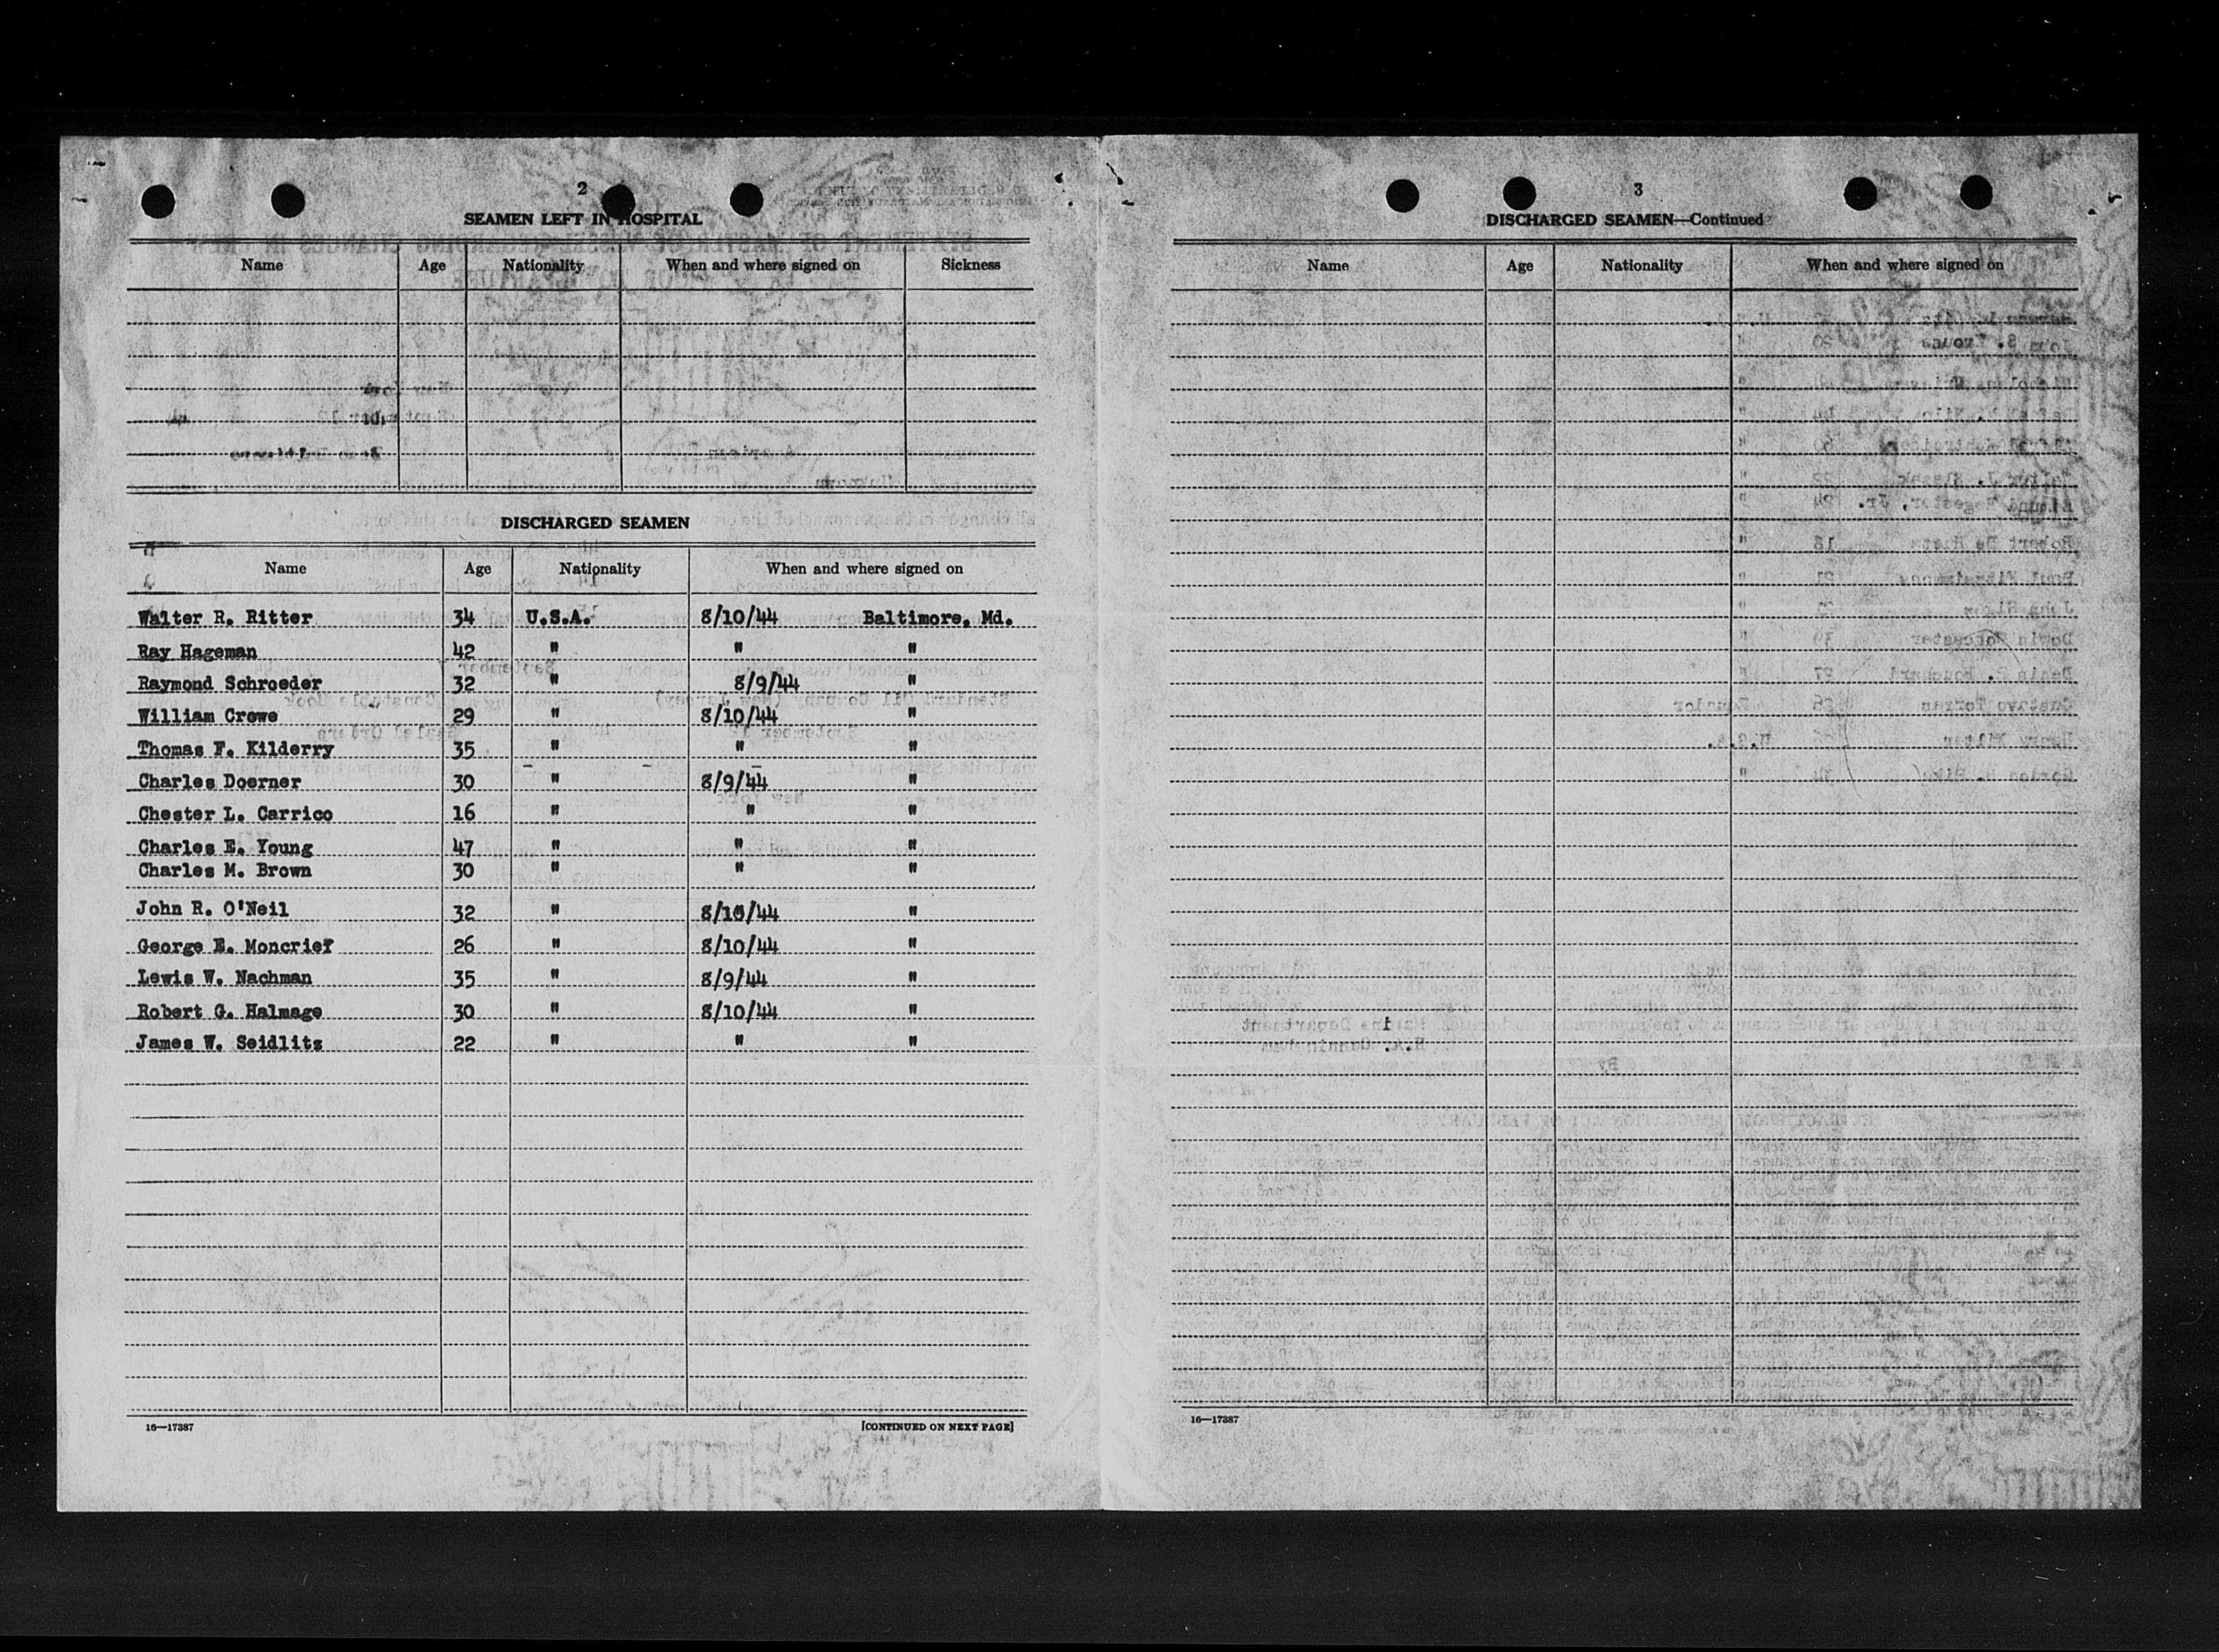 2
SEAMEN LEFT IN HOSPITAL
Name Age Nationality When and where signed on Sickness
DISCHARGED SEAMEN
Name Age Nationality When and where signed on
Walter R. Ritter 34 U.S.A. 8/10/44 Baltimore, Md.
Ray Hageman 42 " " "
Raymond Schroeder 32 " 8/9/44 "
William Crowe 29 " 8/10/44 "
Thomas F. Kilderry 35 " " "
Charles Doerner 30 " 8/9/44 "
Chester L. Carrico 16 " " "
Charles E. Young 47 " " "
Charles M. Brown 30 " " "
John R. O'Neil 32 " 8/10/44 "
George E. Moncrief 26 " 8/10/44 "
Lewis W. Nachman 35 " 8/9/44 "
Robert G. Halmage 30 " 8/10/44 "
James W. Seidlitz 22 " " "
16—17387 [CONTINUED ON NEXT PAGE]
3
DISCHARGED SEAMEN—Continued
Name Age Nationality When and where signed on
16—17387